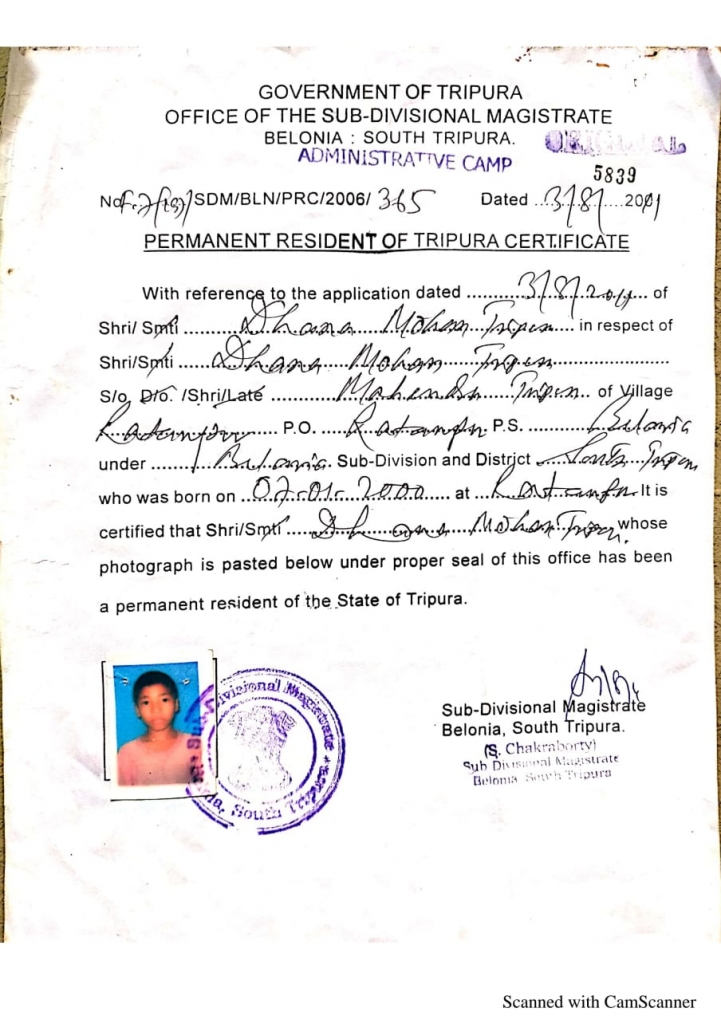 GOVERNMENT OF TRIPURA
OFFICE OF THE SUB-DIVISIONAL MAGISTRATE
BELONIA : SOUTH TRIPURA.
ORIGINAL
ADMINISTRATIVE CAMP
5839
No /SDM/BLN/PRC/2006/ 365 Dated ..3/8/....2011
PERMANENT RESIDENT OF TRIPURA CERTIFICATE
With reference to the application dated ..........3/8/2011... of
Shri/ Smti ..........Dhana....Mohan Tripura.... in respect of
Shri/Smti .....Dhana...Mohan.....Tripura....................
S/o, D/o. /Shri/Late ............Mahendra Tripura.. of Village
Ratanpur...... P.O. ...Ratanpur. P.S. ..........Belonia
under ......../Belonia. Sub-Division and District ...South Tripura
who was born on ..02-01-2000..... at ...Ratanpur. It is
certified that Shri/Smti .....Dhana Mohan Tripura, whose
photograph is pasted below under proper seal of this office has been
a permanent resident of the State of Tripura.
Sub-Divisional Magistrate
Belonia, South Tripura.
(S. Chakraborty)
Sub Divisional Magistrate
Belonia South Tripura
Sub-Divisional Magistrate * Belonia, South Tripura *
Scanned with CamScanner